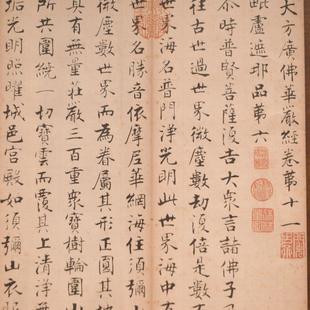 大方廣佛華嚴經卷第十一
毗盧遮那品第六
尒時普賢菩薩復告大衆言諸佛子
往古世過世界微塵數劫復倍是數
世界海名普門淨光明此世界海中有
世界名勝音依摩尼華網海住須彌
微塵數世界而為眷屬其形正圓其地
具有無量莊嚴三百重衆寶樹輪圍山
所共圍繞一切寶雲而覆其上清淨無
垢光明照曜城邑宮殿如須彌山衣服